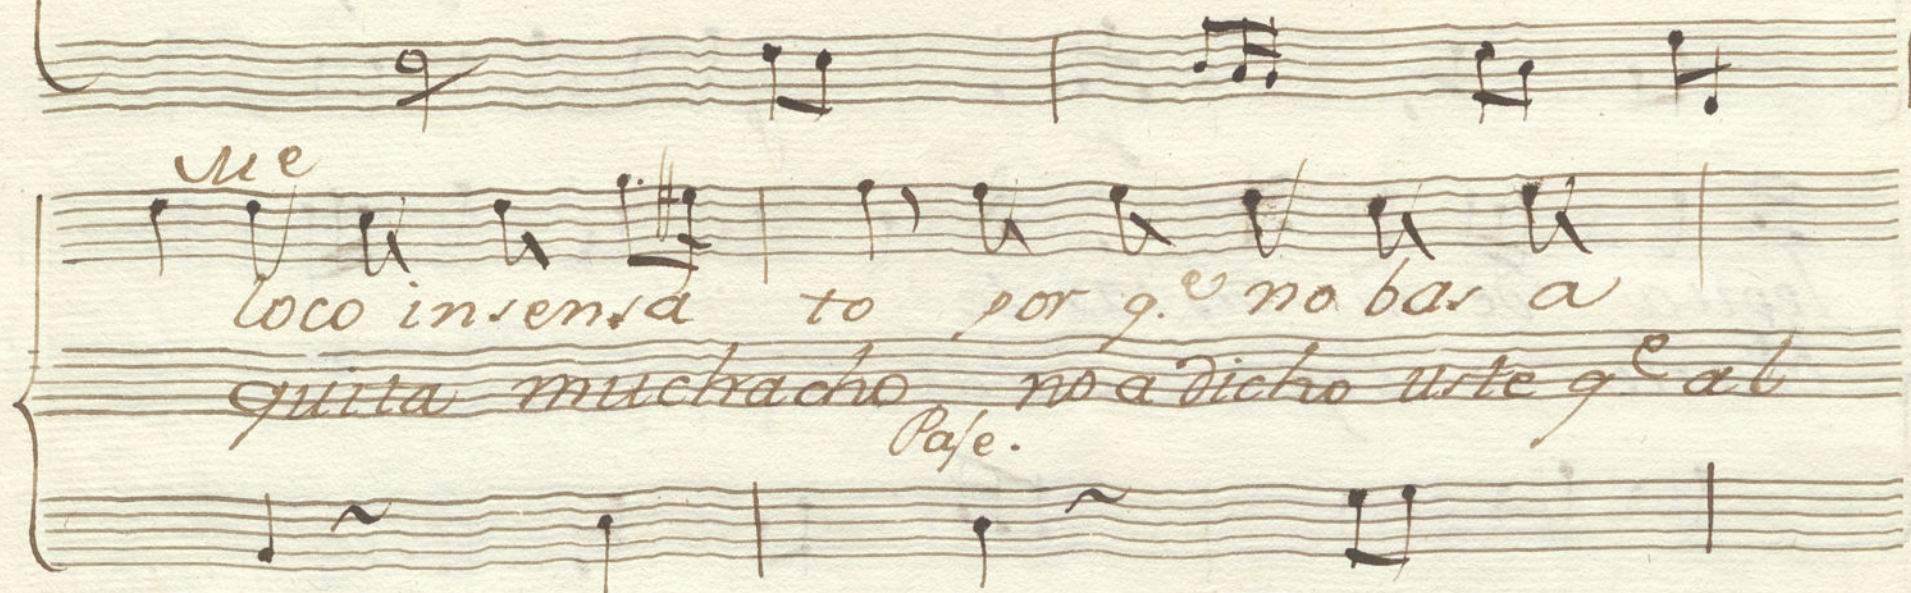 Me
loco insensa to por q.e no bas a
quita muchacho no a dicho uste qe al
Pase.